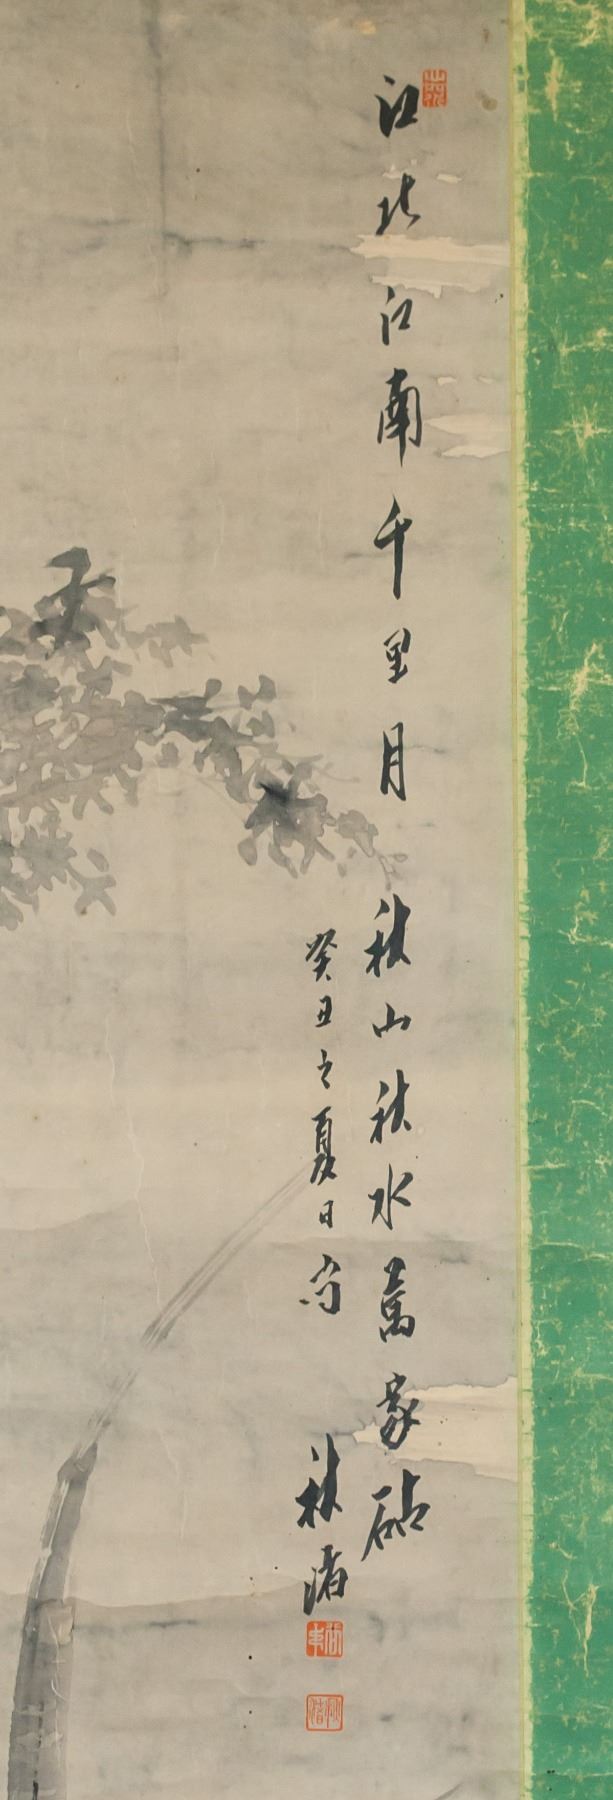 江北江南千里月 秋山秋水萬家砧
癸丑之夏日寫
秋渚